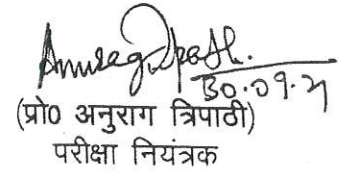 Anurag Tripathi.
30.09.21
(प्रो0 अनुराग त्रिपाठी)
परीक्षा नियंत्रक